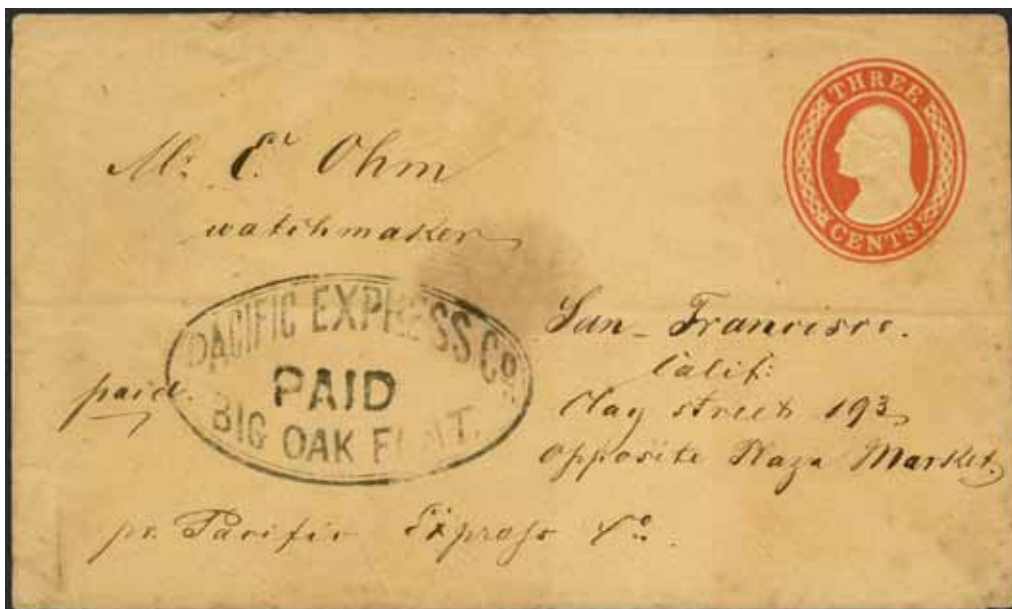 THREE
CENTS
Mr. E. Ohm
watchmaker
PACIFIC EXPRESS Co.
PAID
BIG OAK FLAT.
paid.
San-Francisco.
Calif:
Clay street 193
opposite Plaza Market.
pr. Pacific Express Co.